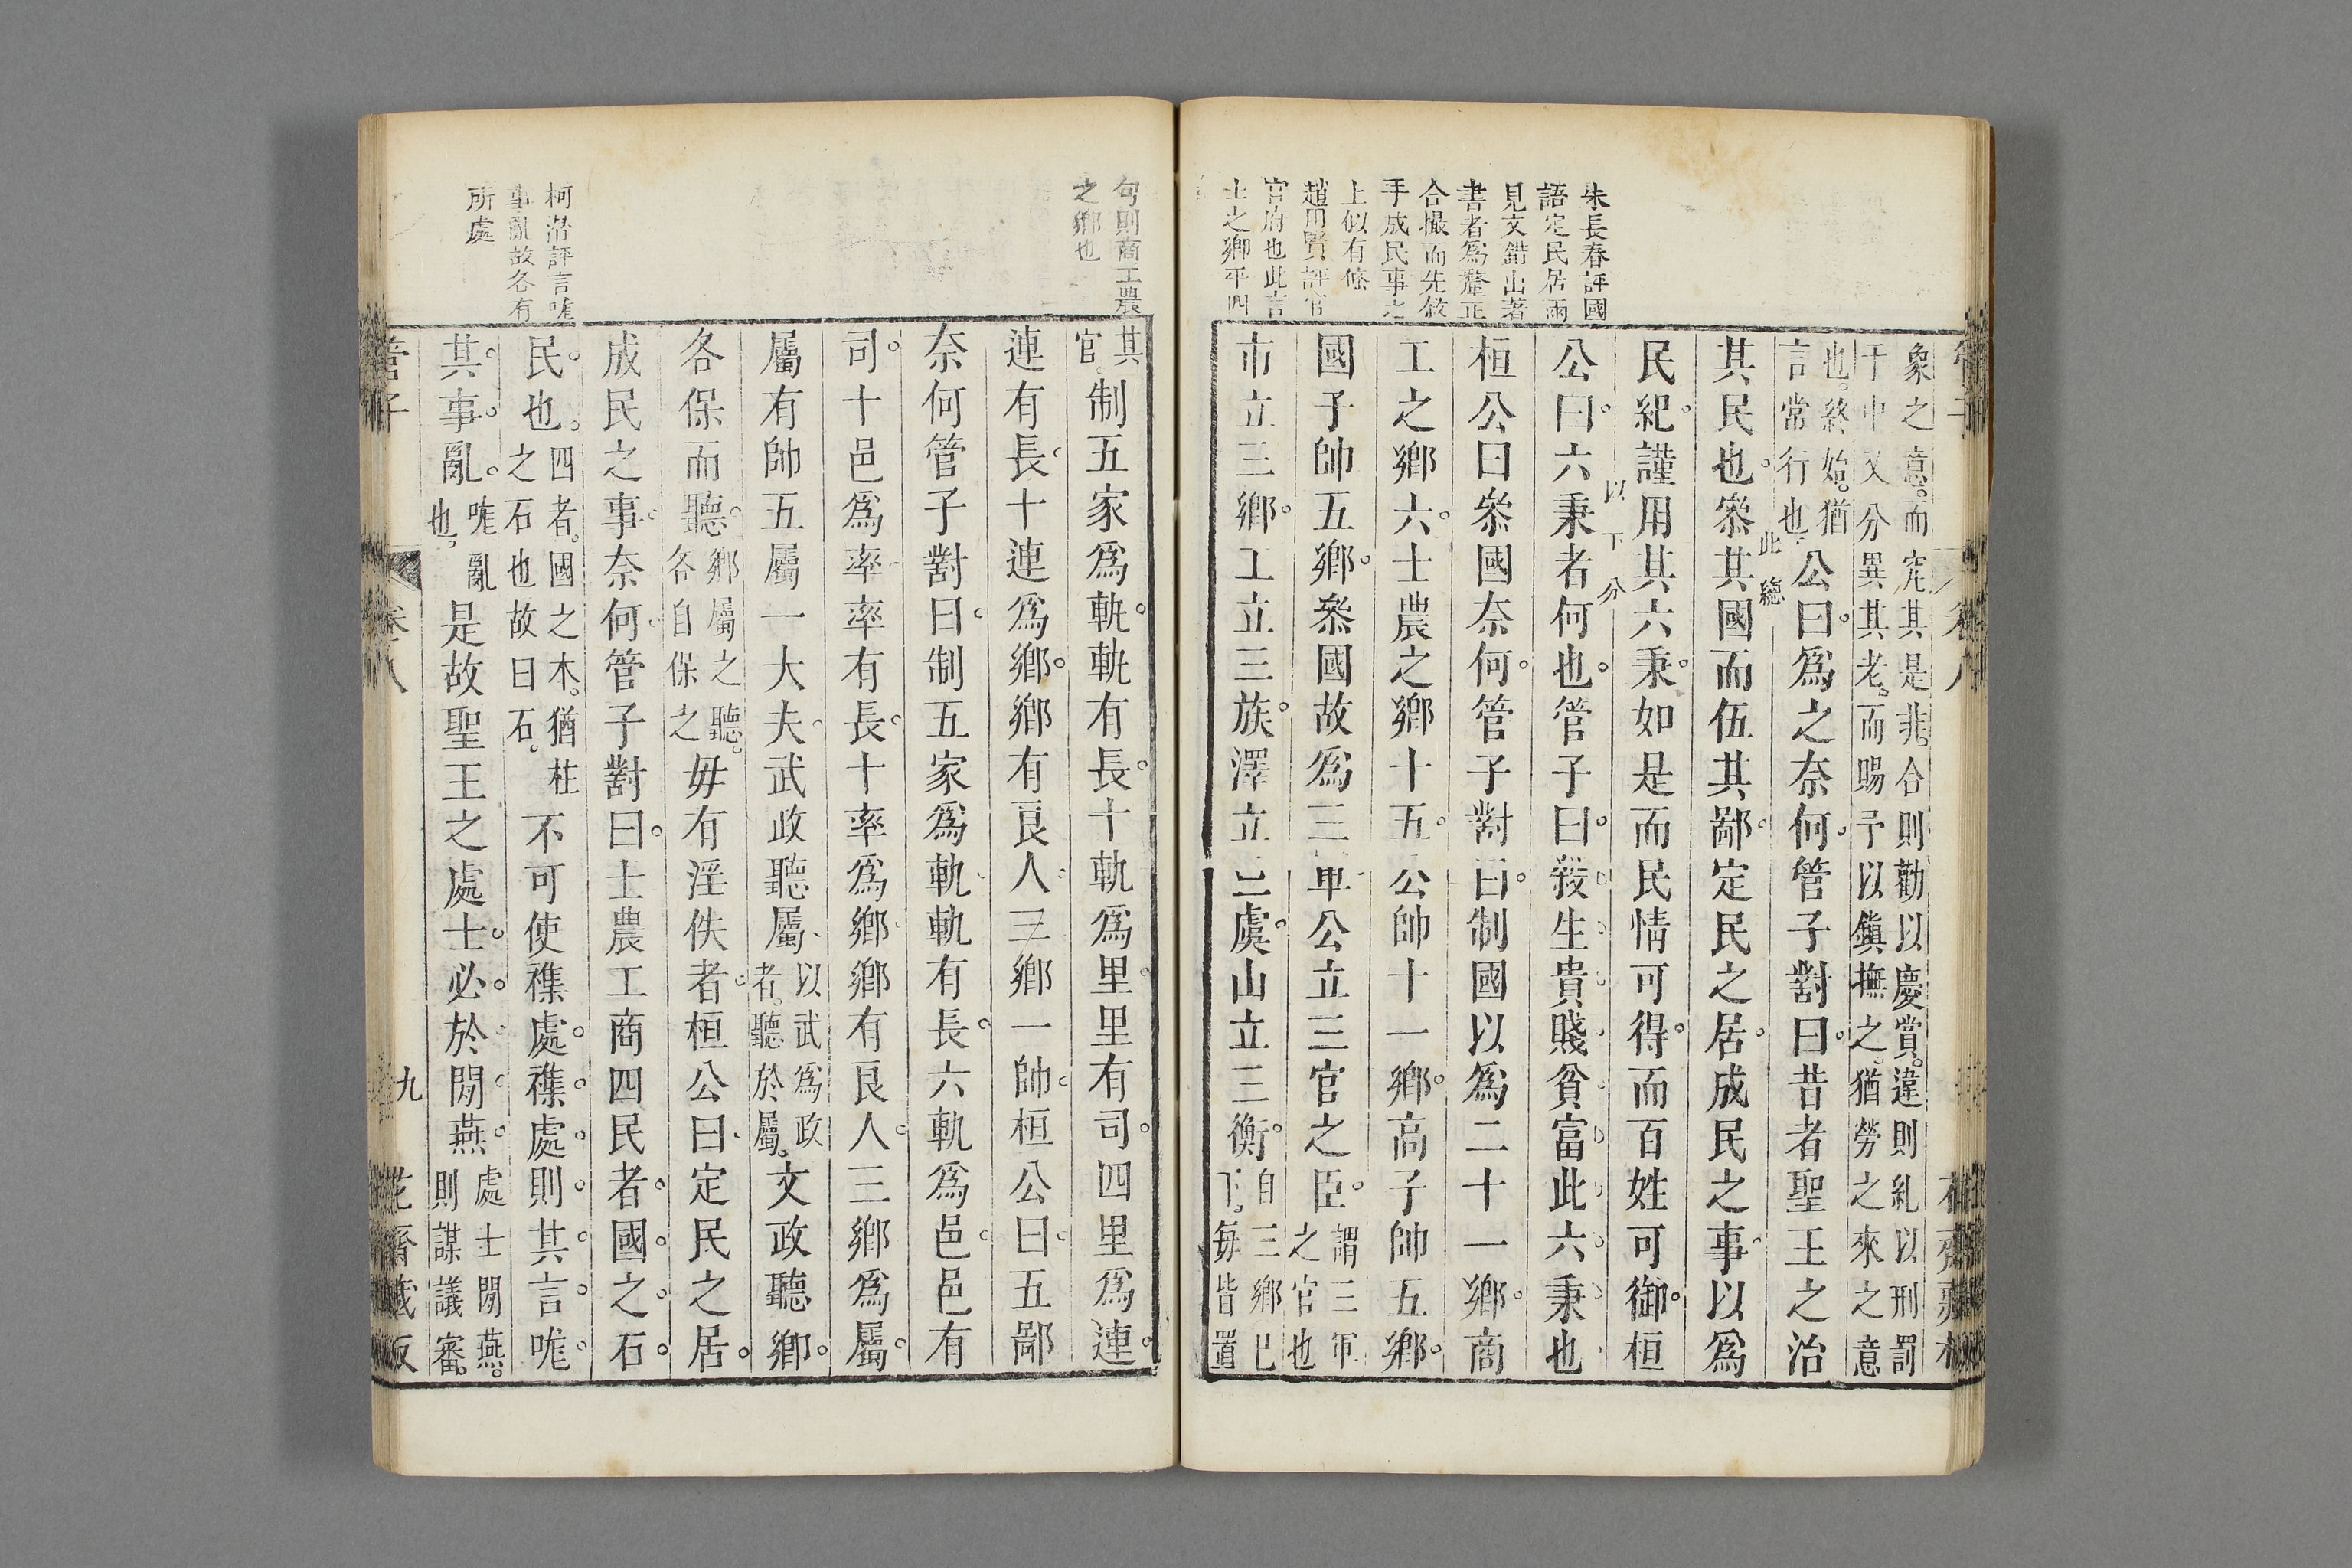 朱長春評國
語定民居兩
見文錯出著
書者為釐正
合撮而先敘
手成民事之
上似有條
趙用賢評官
官府也此言
士之鄉平四
象之意而究其是非合則勸以慶賞違則糺以刑罰
于中又分異其老而賜予以鎭撫之猶勞之來之意
也終始猶
言常行也
公曰爲之奈何管子對曰昔者聖王之治
其民也叅其國而伍其鄙定民之居成民之事以爲
此總
民紀謹用其六秉如是而民情可得而百姓可御桓
以下分
公曰六秉者何也管子曰殺生貴賤貧富此六秉也
桓公曰叅國奈何管子對曰制國以爲二十一鄉商
工之鄉六士農之鄉十五公帥十一鄉高子帥五鄉
國子帥五鄉叅國故爲三軍公立三官之臣
謂三軍
之官也
市立三鄉工立三族澤立三虞山立三衡
自三鄉已
下每皆置
句則商工農
之鄉也
柯潛評言哤
事亂故各有
所處
其
官
制五家爲軌軌有長十軌爲里里有司四里爲連
連有長十連爲鄉鄉有良人三鄉一帥桓公曰五鄙
奈何管子對曰制五家爲軌軌有長六軌爲邑邑有
司十邑爲率率有長十率爲鄉鄉有良人三鄉爲屬
屬有帥五屬一大夫武政聽屬
以武爲政
者聽於屬
文政聽鄉
各保而聽
鄉屬之聽
各自保之
毋有淫佚者桓公曰定民之居
成民之事奈何管子對曰士農工商四民者國之石
民也
四者國之木猶柱
之石也故曰石
不可使襍處襍處則其言哤
其事亂
哤亂
也
是故聖王之處士必於閒燕
處士閒燕
則謀議審
管子
卷八
九
花齋藏板